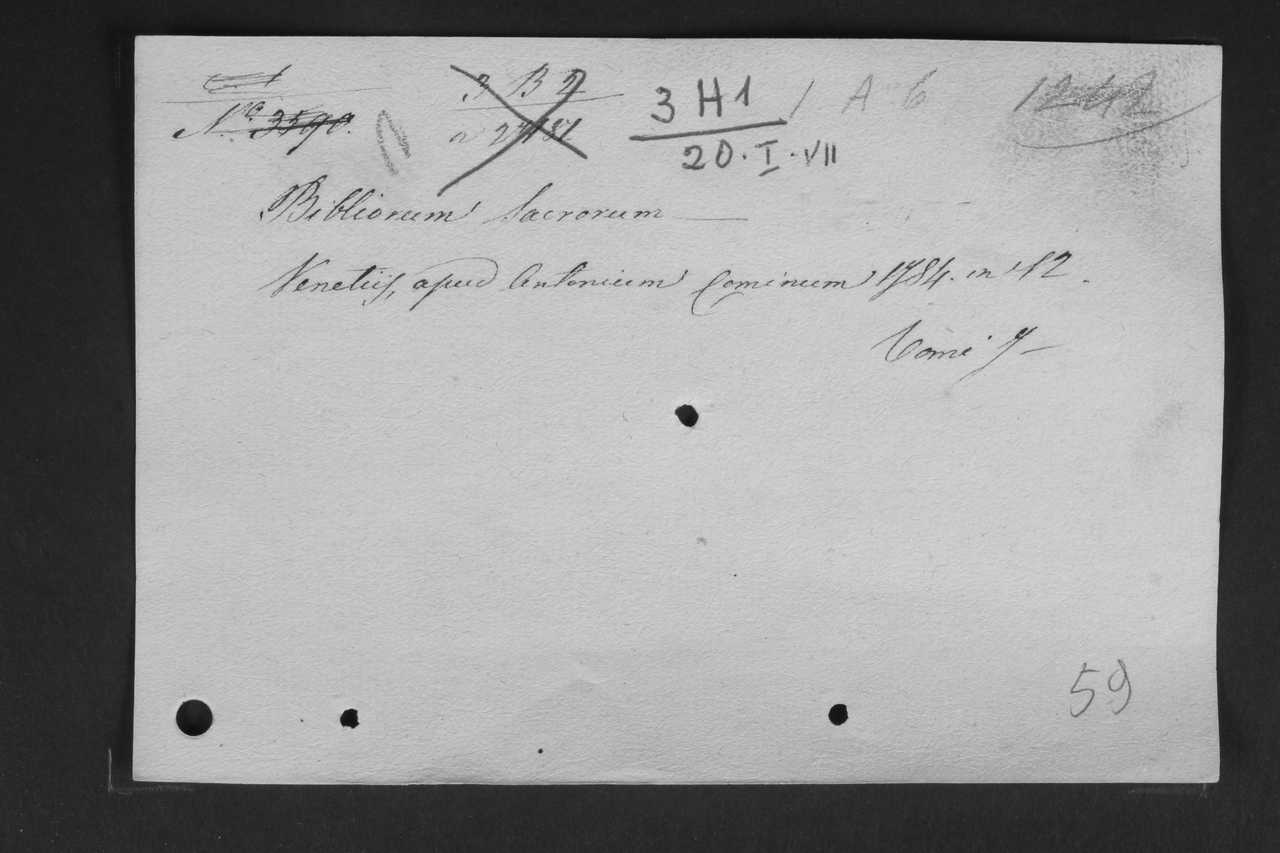 3 B 2
3 H 1 / A 6
1242
N.º 3590.
20 · I · VII
Bibliorum Sacrorum
Venetiis, apud Antonium Cominum 1784. in 12.
Tomi 7
59